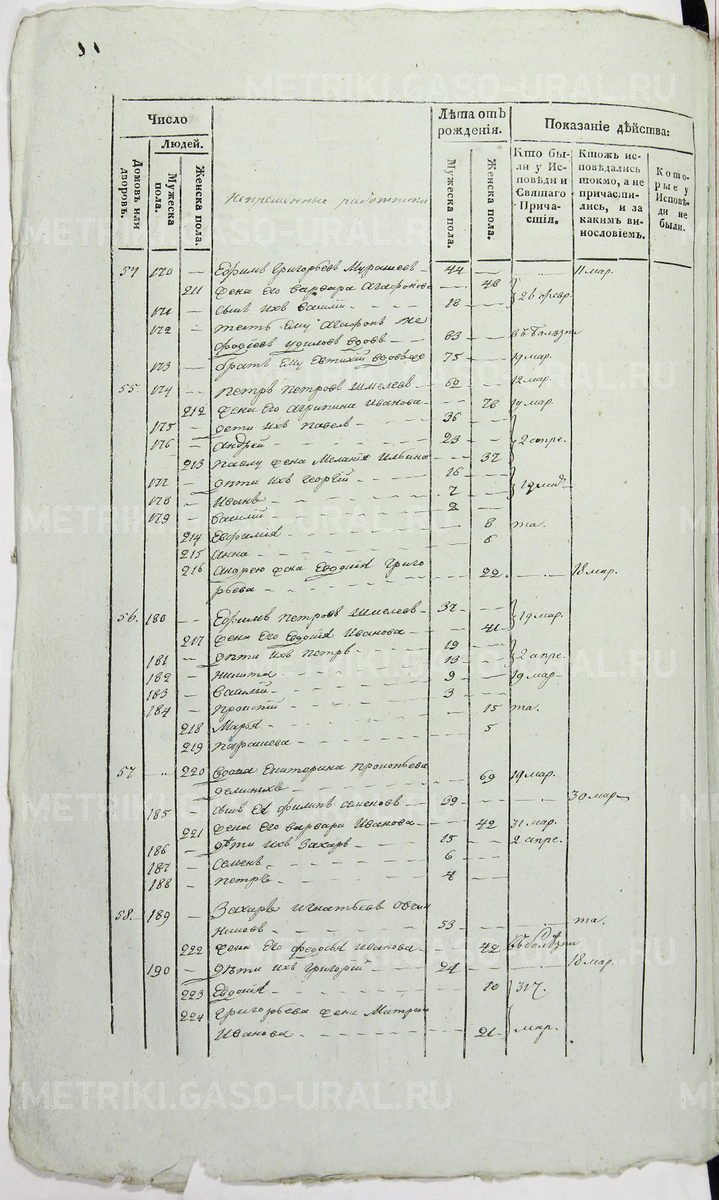 Число
Людей.
Домовъ или дворовъ.
Мужеска пола.
Женска пола.
Непременные работники
Лѣта отъ рожденія.
Мужеска пола.
Женска пола.
Показаніе дѣйства:
Кто были у Исповѣди и Святаго Причастія.
Ктожъ исповѣдались токмо, а не причастились, и за какимъ винословіемъ.
Которые у Исповѣди не были.
170 — Ефимъ Григорьевъ 44 — 11 мар.
211 Жена его Варвара 48
171 — Сынъ ихъ Василій 18 26 февр.
172 — тесть ему
вдовъ 83 въ болѣзни
173 — братъ ему Евтихій 75 — 19 мар.
55. 174 — Петръ Петровъ Шмелевъ 69 — 12 мар.
212 Жена его Иванова — 78 19 мар.
175 — дети ихъ Павелъ 36
176 — Андрей 23 — 2 апре.
213 Павлу жена Меланія Ильина 37
177 — дѣти ихъ Георгій 16
178 — Иванъ 7 —
179 — Василій 2 —
214 Евфимія — 8 та.
215 Анна — 6
216 Андрею жена Евдокія Григо
рьева — 22 — 18 мар.
56. 180 — Ефимъ Петровъ Шмелевъ 37 — 19 мар.
217 Жена его Евдокія Иванова — 41
181 — дѣти ихъ Петръ 19 — 2 апре.
182 — Никита 13
183 — Василій 9 — 19 мар.
184 — Прокопій 3 —
218 Марья — 15 та.
219 Парасева — 5
57 220 вдова Екатерина Прокопьева
69 19 мар.
185 — сынъ ея Филипъ Семеновъ 39 — 30 мар
221 Жена его Варвара Иванова — 42 31 мар.
186 — дѣти ихъ Захаръ 15 — 2 апре.
187 — Семенъ 6 —
188 — Петръ 4 —
58. 189 — Захаръ Игнатьевъ Овчин
никовъ 53 — та.
222 Жена его Федосья Иванова — 42 въ болѣзни
190 — дѣти ихъ Григорій 24 — 18 мар.
223 Евдокія — 10 31
224 Григорьева жена Матрен
Иванова — 21 мар.
METRIKI.GASO-URAL.RU